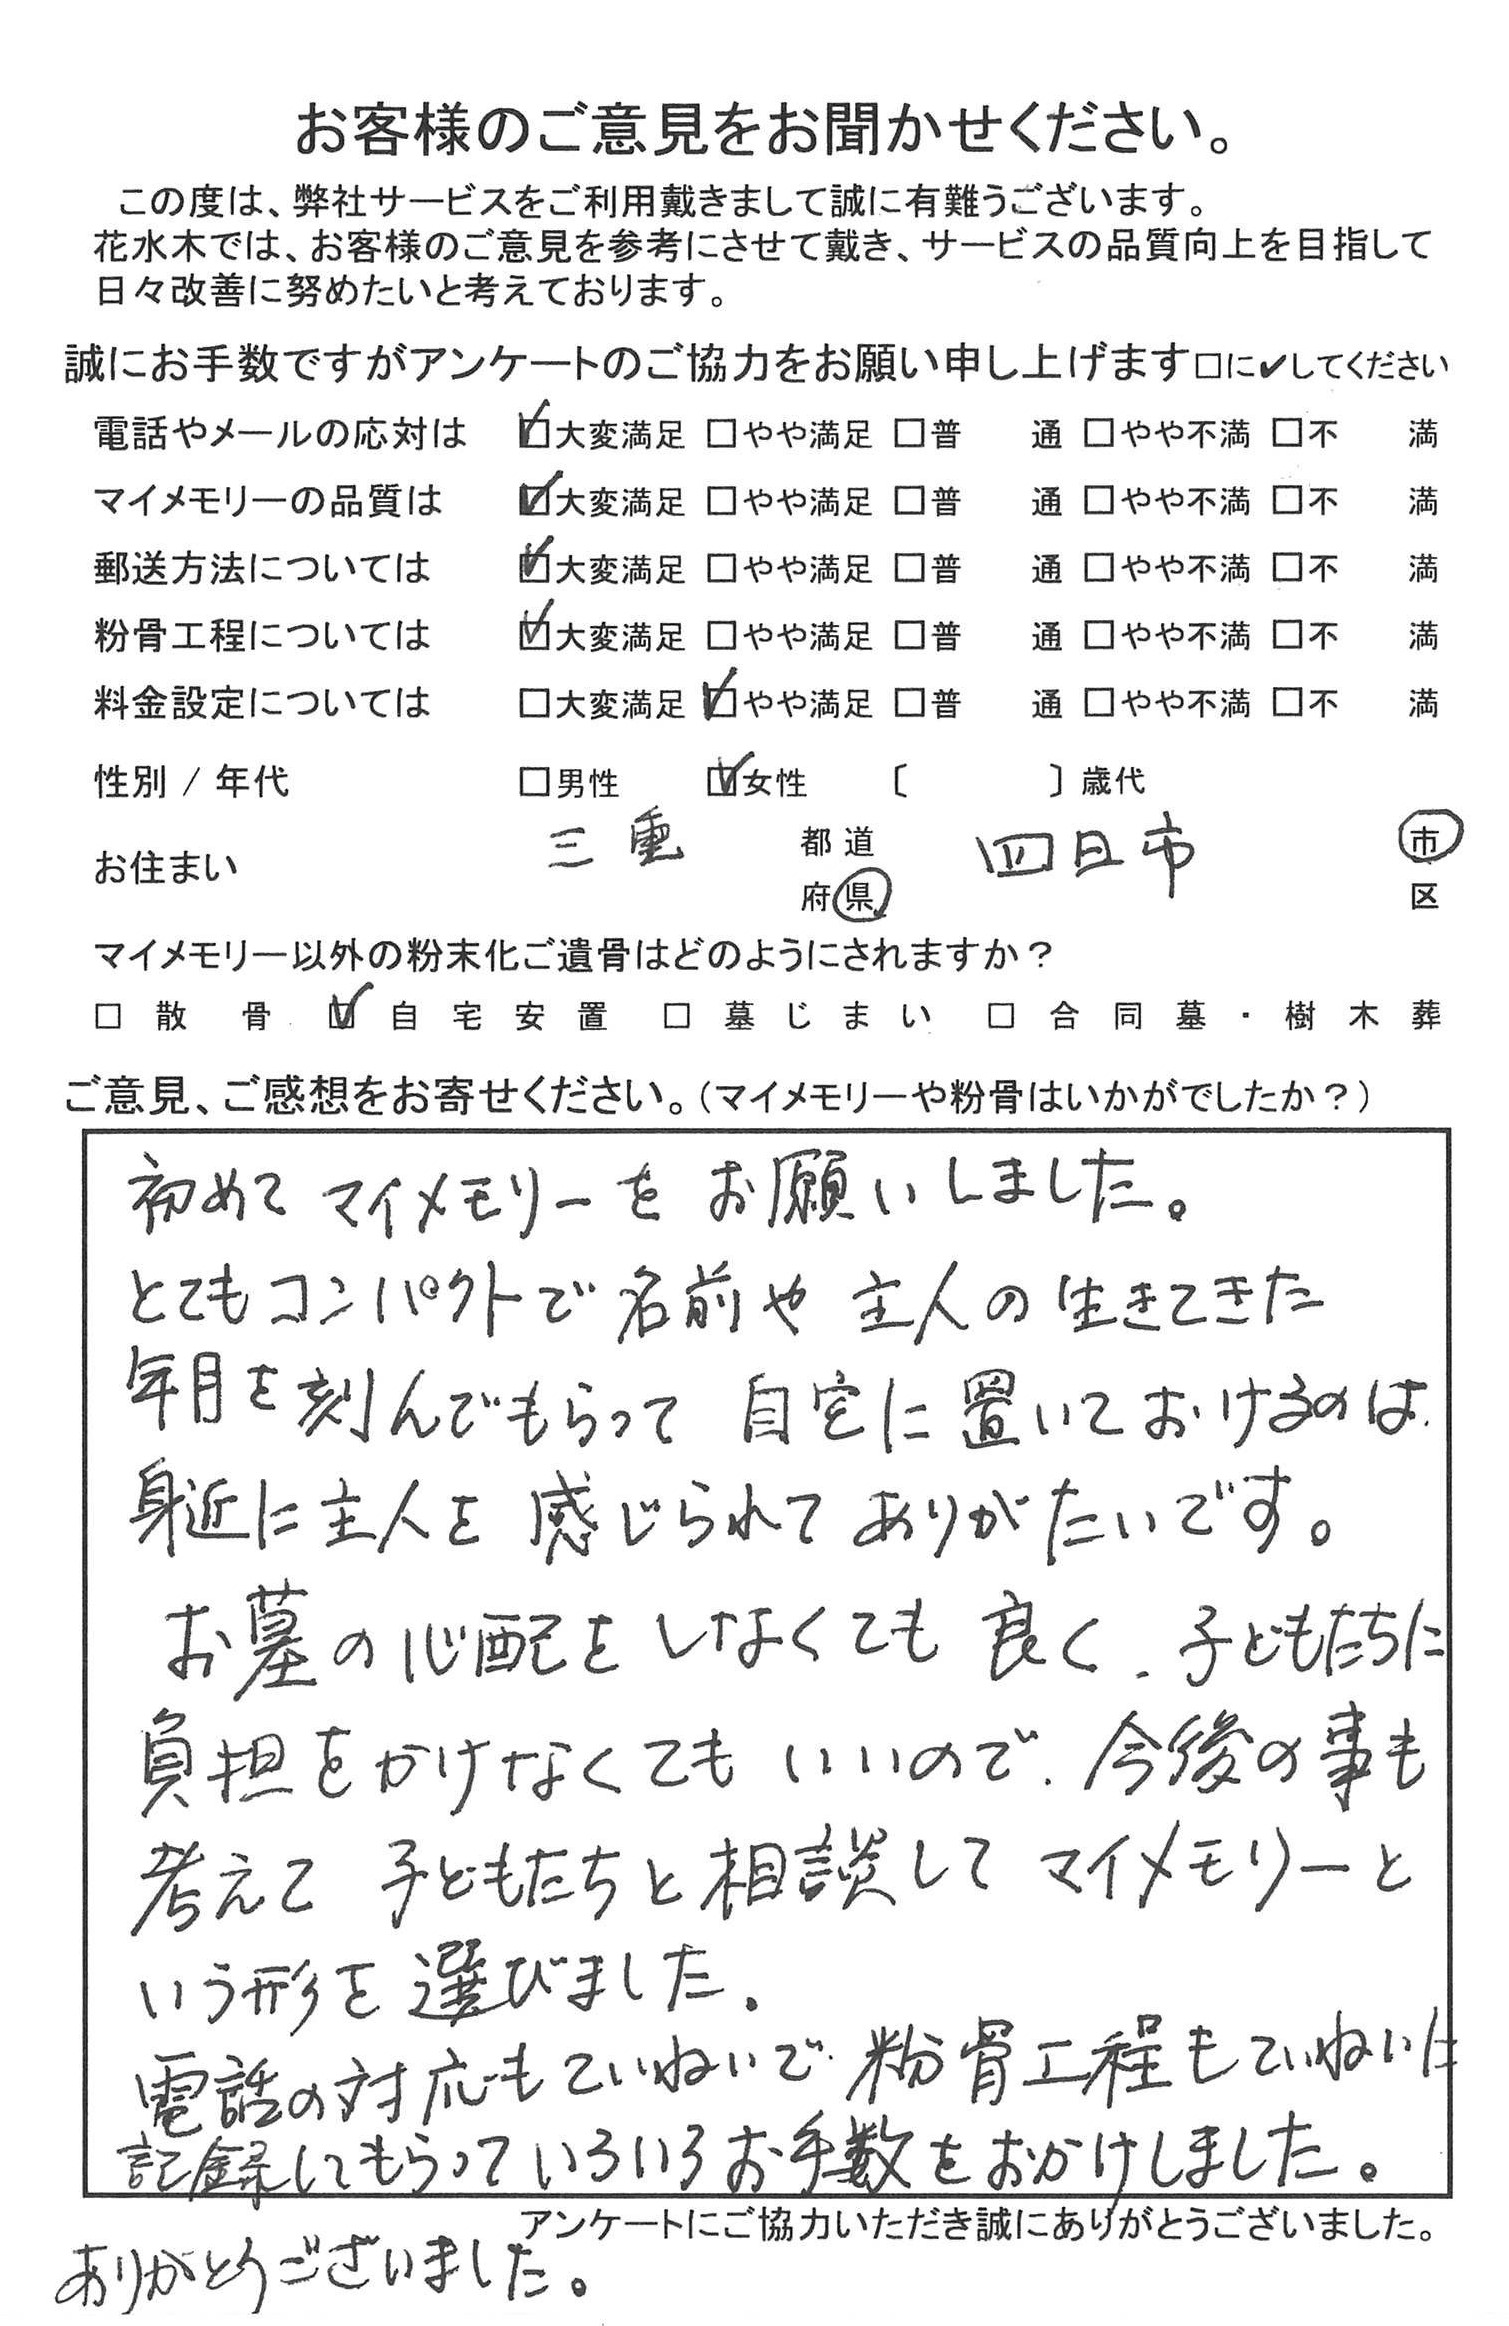 お客様のご意見をお聞かせください。
この度は、弊社サービスをご利用戴きまして誠に有難うございます。
花水木では、お客様のご意見を参考にさせて戴き、サービスの品質向上を目指して
日々改善に努めたいと考えております。
誠にお手数ですがアンケートのご協力をお願い申し上げます□に✔してください
電話やメールの応対は ☑大変満足 □やや満足 □普 通 □やや不満 □不 満
マイメモリーの品質は ☑大変満足 □やや満足 □普 通 □やや不満 □不 満
郵送方法については ☑大変満足 □やや満足 □普 通 □やや不満 □不 満
粉骨工程については ☑大変満足 □やや満足 □普 通 □やや不満 □不 満
料金設定については □大変満足 ☑やや満足 □普 通 □やや不満 □不 満
性別 / 年代 □男性 ☑女性 〔 〕歳代
お住まい 三重 都道府県 四日市 市区
マイメモリー以外の粉末化ご遺骨はどのようにされますか？
□ 散骨 ☑ 自宅安置 □ 墓じまい □ 合同墓・樹木葬
ご意見、ご感想をお寄せください。（マイメモリーや粉骨はいかがでしたか？）
初めて マイメモリーを お願いしました。
とてもコンパクトで 名前や 主人の 生きてきた
年月を刻んでもらって 自宅に置いておけるのは、
身近に主人を 感じられて ありがたいです。
お墓の心配を しなくても 良く、子どもたちに
負担をかけなくても いいので、今後の事も
考えて 子どもたちと相談して マイメモリーと
いう形を選びました。
電話の対応もていねいで、粉骨工程もていねいに
記録してもらっていろいろお手数をおかけしました。
アンケートにご協力いただき誠にありがとうございました。
ありがとうございました。